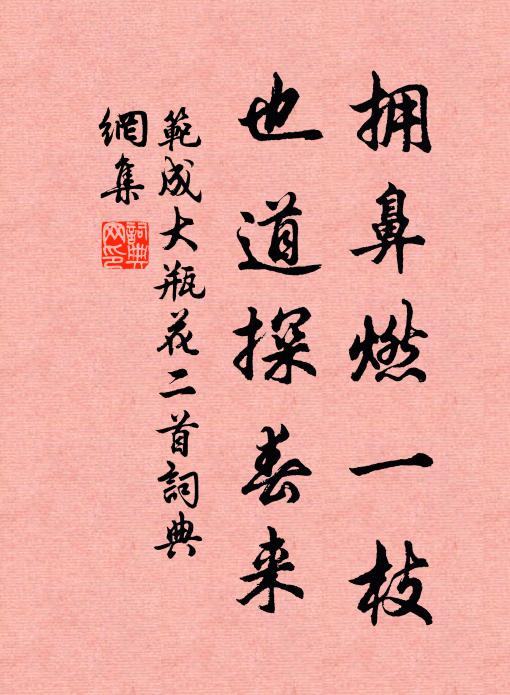 拥鼻燃一枝
也道探春来
範成大瓶花二首詞典
網集
詞典网印